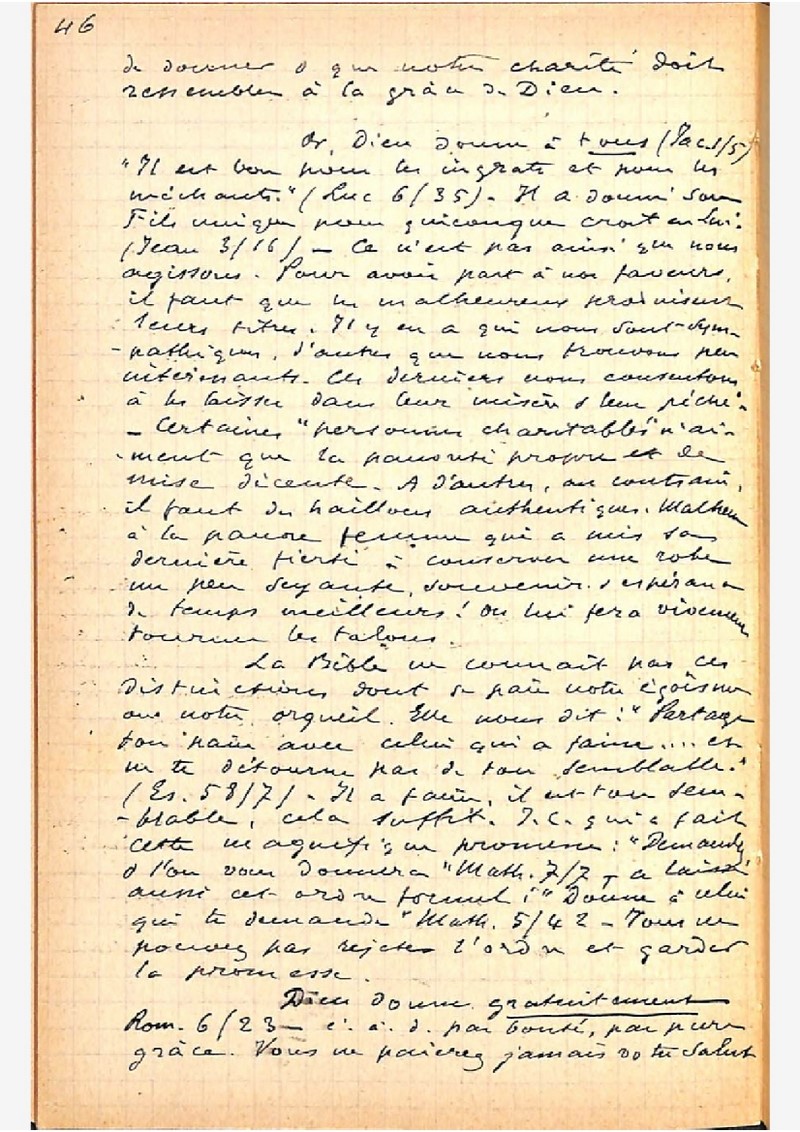 46
de donner & que notre charité doit
ressembler à la grâce de Dieu.
Or, Dieu donne à tous (Jac.1/5)
"Il est bon pour les ingrats et pour les
méchants." (Luc 6/35). Il a donné son
Fils unique pour quiconque croit en Lui.
(Jean 3/16) – Ce n'est pas ainsi que nous
agissons. Pour avoir part à nos faveurs,
il faut que les malheureux produisent
leurs titres. Il y en a qui nous sont sym-
-pathiques, d'autres que nous trouvons peu
intéressants. Ces derniers nous consentons
à les laisser dans leur misère & leur péché.
– Certaines "personnes charitables" n'ai-
-ment que la pauvreté propre et de
mise décente. A d'autres, au contraire,
il faut des haillons authentiques. Malheur
à la pauvre femme qui a mis sa
dernière fierté à conserver une robe
un peu seyante, souvenir & espérance
de temps meilleurs! On lui fera vivement
tourner les talons.
La Bible ne connait pas ces
distinctions dont se paie notre égoïsme
ou notre orgueil. Elle nous dit: "Partage
ton pain avec celui qui a faim.... et
ne te détourne pas de ton semblable."
(Es. 58/7). Il a faim, il est ton sem-
-blable, cela suffit. J.C. qui a fait
cette magnifique promesse: "Demandez
& l'on vous donnera" Math. 7/7 – a laissé
aussi cet ordre formel: "Donne à celui
qui te demande" Math. 5/42 – Vous ne
pouvez pas rejeter l'ordre et garder
la promesse.
Dieu donne gratuitement
Rom. 6/23 – c. à. d. par bonté, par pure
grâce. Vous ne paierez jamais votre salut